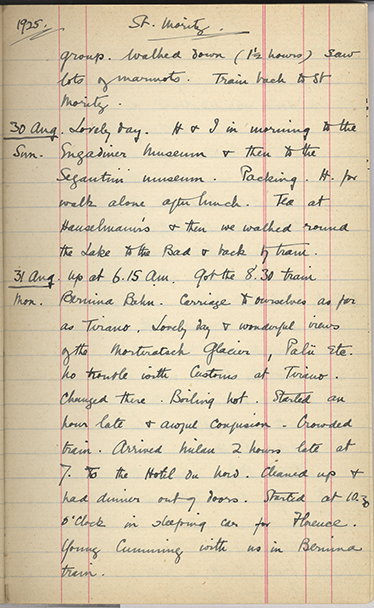 1925. St. Moritz.
group. Walked down (1½ hours) Saw
lots of marmots. Train back to St
Moritz.
30 Aug. Lovely day. H & I in morning to the
Sun. Engadiner Museum & then to the
Segantini museum. Packing. H. for
walk alone after lunch. Tea at
Hanselmann's & then we walked round
the Lake to the Bad & back by tram.
31 Aug. Up at 6.15 am. Got the 8.30 train
Mon. Bernina Bahn. Carriage to ourselves as far
as Tirano. Lovely day & wonderful views
of the Morteratsch Glacier, Palü etc.
No trouble with Customs at Tirano.
Changed there. Boiling hot. Started an
hour late & awful confusion. Crowded
train. Arrived Milan 2 hours late at
7. To the Hotel du Nord. Cleaned up &
had dinner out of doors. Started at 10.30
o'clock in sleeping car for Florence.
Young Cumming with us in Bernina
train.